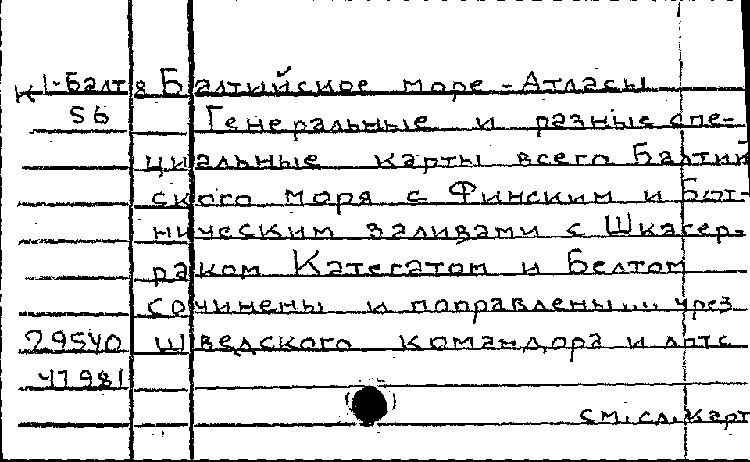 К1-Балт 8 Балтийское море - Атласы
56 Генеральные и разные спе-
циальные карты всего Балтий
ского моря с Финским и Бот-
ническим заливами с Шкагер-
раком Категатом и Белтом
сочинены и поправлены.... чрез
29540 шведского командора и
47981
см.сл.карт